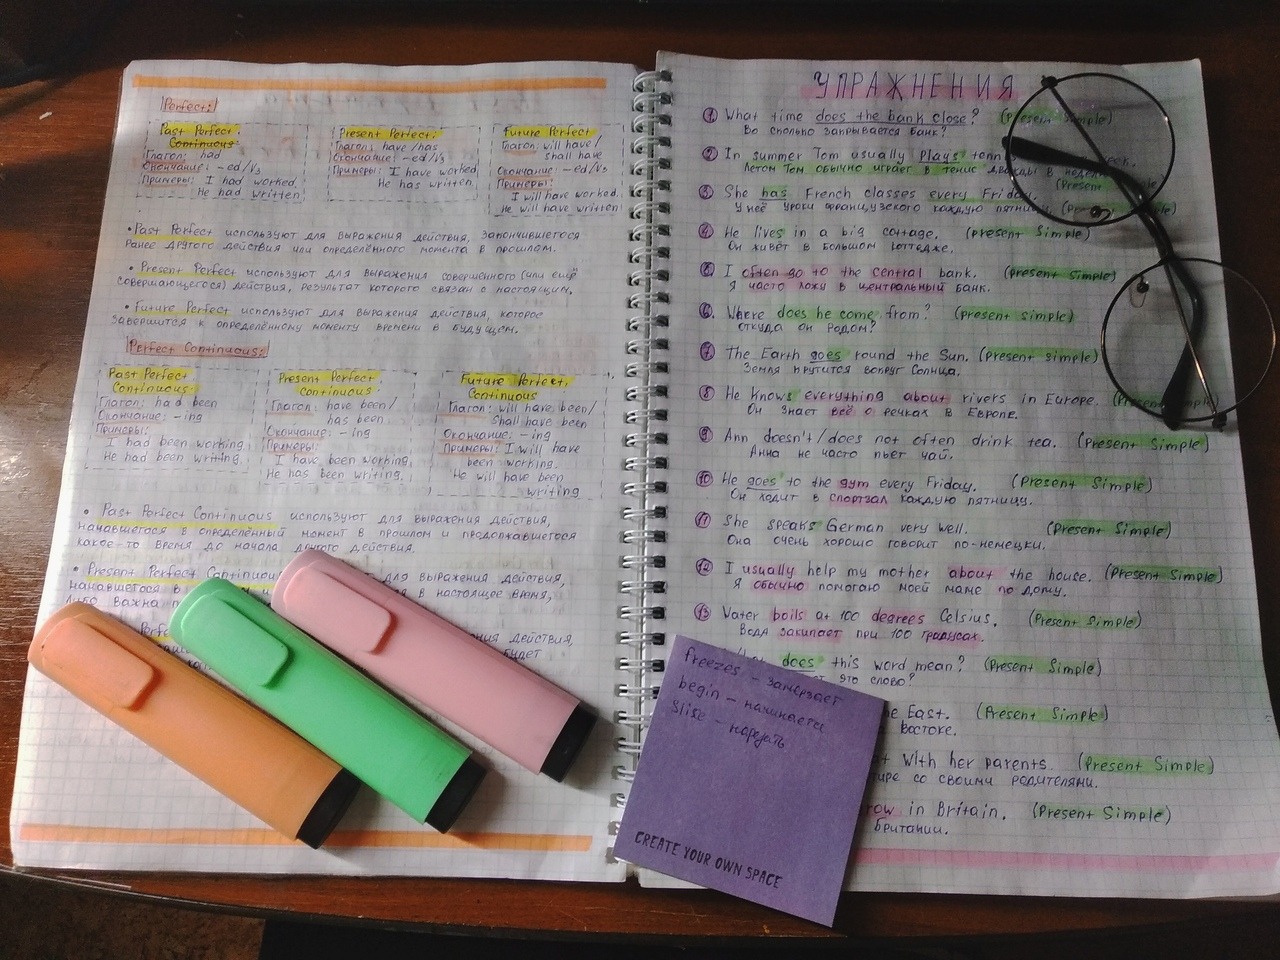 Perfect:
Past Perfect
Continuous:
Глагол: had
Окончание: -ed/V₃
Примеры: I had worked.
He had written.
Present Perfect:
Глагол: have/has
Окончание: -ed/V₃
Примеры: I have worked.
He has written.
Future Perfect
Глагол: will have/
shall have
Окончание: -ed/V₃
Примеры:
I will have worked.
He will have written.
• Past Perfect используют для выражения действия, закончившегося
ранее другого действия или определённого момента в прошлом.
• Present Perfect используют для выражения совершённого (или ещё
совершающегося) действия, результат которого связан с настоящим.
• Future Perfect используют для выражения действия, которое
завершится к определённому моменту времени в будущем.
Perfect Continuous:
Past Perfect
Continuous:
Глагол: had been
Окончание: -ing
Примеры:
I had been working.
He had been writing.
Present Perfect
Continuous:
Глагол: have been/
has been
Окончание: -ing
Примеры:
I have been working.
He has been writing.
Future Perfect
Continuous
Глагол: will have been/
shall have been
Окончание: -ing
Примеры: I will have
been working.
He will have been
writing
• Past Perfect Continuous используют для выражения действия,
начавшегося в определённый момент в прошлом и продолжавшегося
какое-то время до начала другого действия.
• Present Perfect Continuous для выражения действия,
начавшегося в в настоящее время,
либо важна
действия,
будет
УПРАЖНЕНИЯ
1 What time does the bank close? (Present Simple)
Во сколько закрывается банк?
2 In summer Tom usually plays tennis week.
Летом Том обычно играет в тенис дважды в неделю
(Present Simple)
3 She has French classes every Friday
У неё уроки французского каждую пятницу.
4 He lives in a big cottage. (present Simple)
Он живёт в большом коттедже.
5 I often go to the central bank. (present Simple)
Я часто хожу в центральный банк.
6 Where does he come from? (present simple)
Откуда он родом?
7 The Earth goes round the Sun. (Present simple)
Земля крутится вокруг Солнца.
8 He knows everything about rivers in Europe.
Он знает всё о речках в Европе.
9 Ann doesn't/does not often drink tea. (Present Simple)
Анна не часто пьёт чай.
10 He goes to the gym every Friday. (Present Simple)
Он ходит в спортзал каждую пятницу.
11 She speaks German very well. (Present Simple)
Она очень хорошо говорит по-немецки.
12 I usually help my mother about the house. (Present Simple)
Я обычно помогаю моей маме по дому.
13 Water boils at 100 degrees Celsius. (Present Simple)
Вода закипает при 100 градусах.
does this word mean? (Present Simple)
это слово?
the East. (Present Simple)
Востоке.
with her parents. (Present Simple)
со своими родителями.
in Britain. (Present Simple)
Британии.
freezes - замерзает
begin - начинается
slise - нарезать
CREATE YOUR OWN SPACE